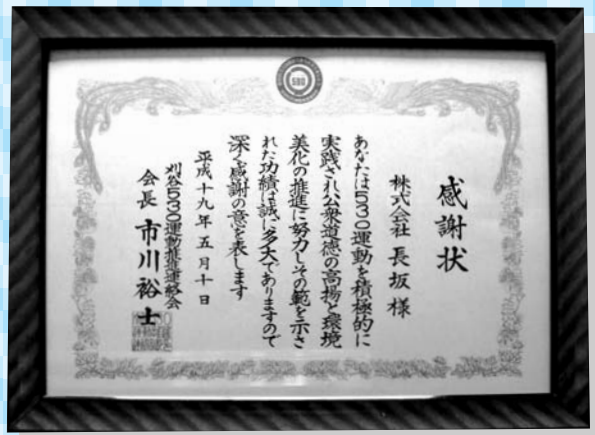 530
感謝状
株式会社 長坂 様
あなたは530運動を積極的に
実践され公衆道徳の高揚と環境
美化の推進に努力しその範を示さ
れた功績は誠に多大でありますので
深く感謝の意を表します
平成十九年五月十日
刈谷530運動推進連絡会
会長 市川裕士